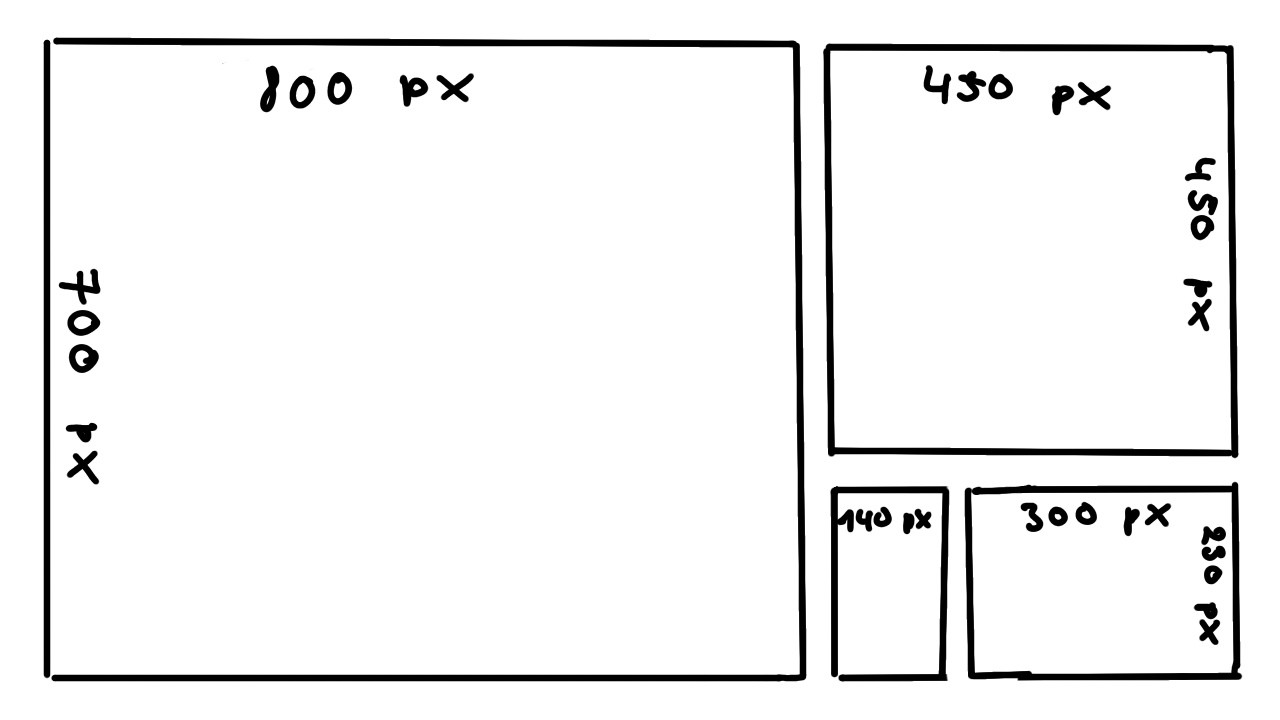 800 px
700 px
450 px
450 px
140 px
300 px
230 px